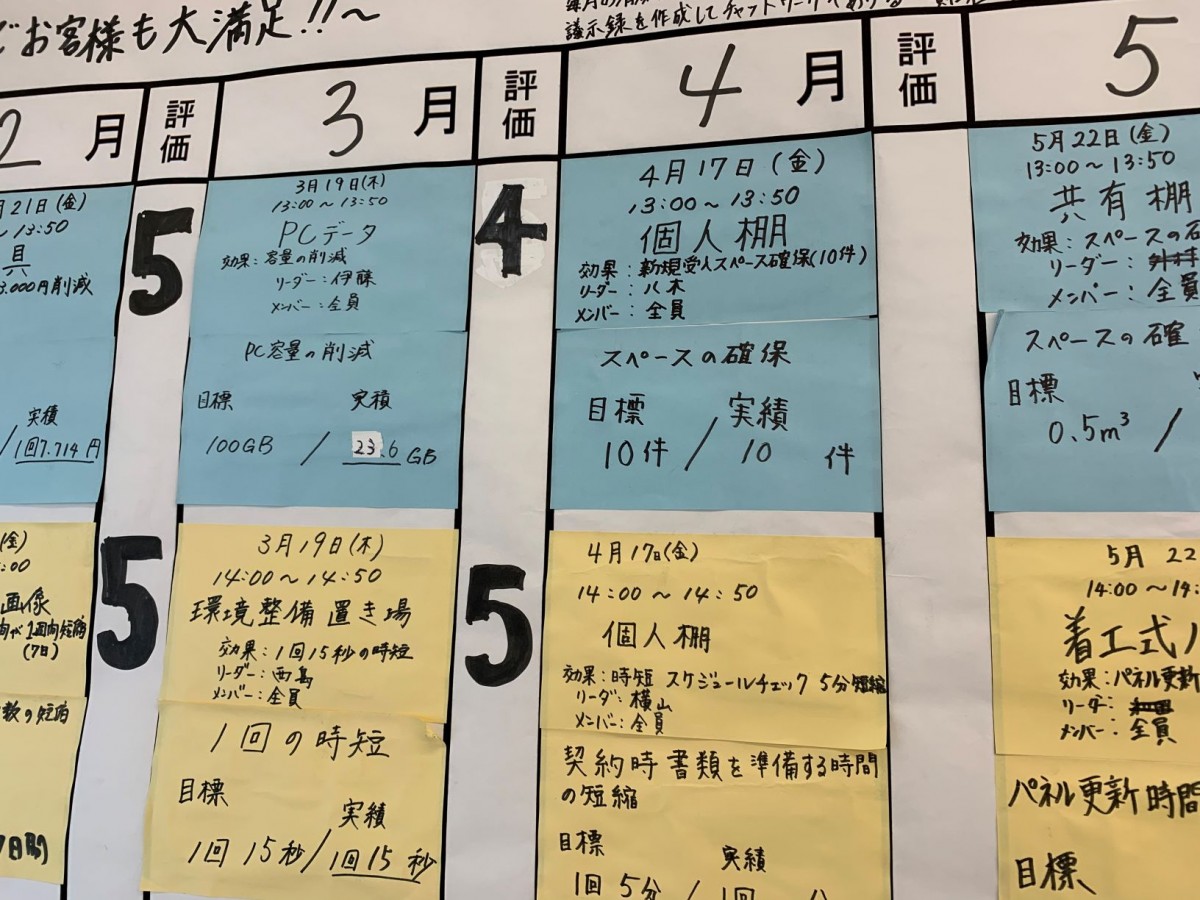 でお客様も大満足!!〜
議示録を作成してチャットワーク
2月
評価
3月
評価
4月
評価
5
月21日(金)
13:50
具
3.000円削減
実積
/1回7.714円
5
3月19日(木)
13:00〜13:50
PCデータ
効果:容量の削減
リーダー:伊藤
メンバー:全員
PC容量の削減
目標 実積
100GB / 23.6GB
4
4月17日(金)
13:00〜13:50
個人棚
効果:新規受入スペース確保(10件)
リーダー:八木
メンバー:全員
スペースの確保
目標 実績
10件 / 10件
5月22日(金)
13:00〜13:50
共有棚
効果:スペースの
リーダー:
メンバー:全員
スペースの確
目標
0.5m³ /
(金)
:00
画像
(7日)
数の短縮
5
3月19日(木)
14:00〜14:50
環境整備置き場
効果:1回15秒の時短
リーダー:西島
メンバー:全員
1回の時短
目標 実績
1回15秒/1回15秒
5
4月17日(金)
14:00〜14:50
個人棚
効果:時短 スケジュールチェック 5分短縮
リーダ:横山
メンバー:全員
契約時書類を準備する時間
の短縮
目標 実績
1回5分/1回
5月22
14:00〜14:
着工式
効果:パネル更新
リーダー:
メンバー:全員
パネル更新時間
目標